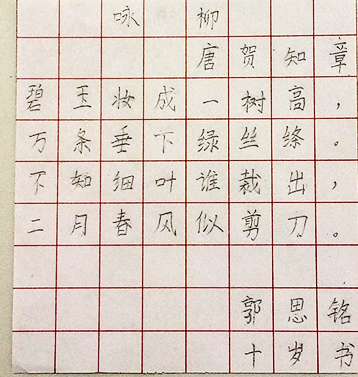 咏柳
唐贺知章
碧玉妆成一树高，
万条垂下绿丝绦。
不知细叶谁裁出，
二月春风似剪刀。
郭思铭
十岁书